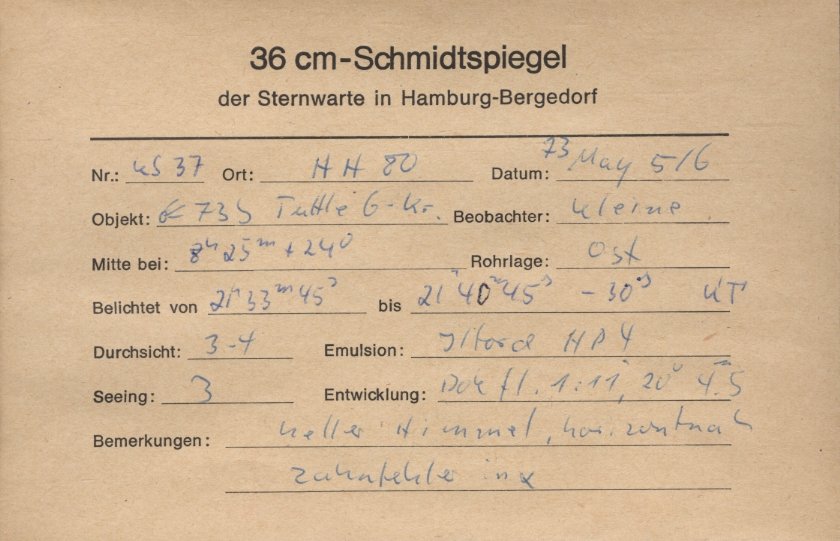 36 cm-Schmidtspiegel
der Sternwarte in Hamburg-Bergedorf
Nr.: KS 37 Ort: HH 80 Datum: 73 May 5/6
Objekt: 73b Tuttle G-Kr. Beobachter: Kleine
Mitte bei: 8h 25m + 24° Rohrlage: Ost
Belichtet von 21h 33m 45s bis 21h 40m 45s - 30s
Durchsicht: 3-4 Emulsion: Ilford HP4
Seeing: 3 Entwicklung: Dok fl. 1:11, 20° 4.m5
Bemerkungen: heller Himmel, horizontnah
Zahnfehler in α